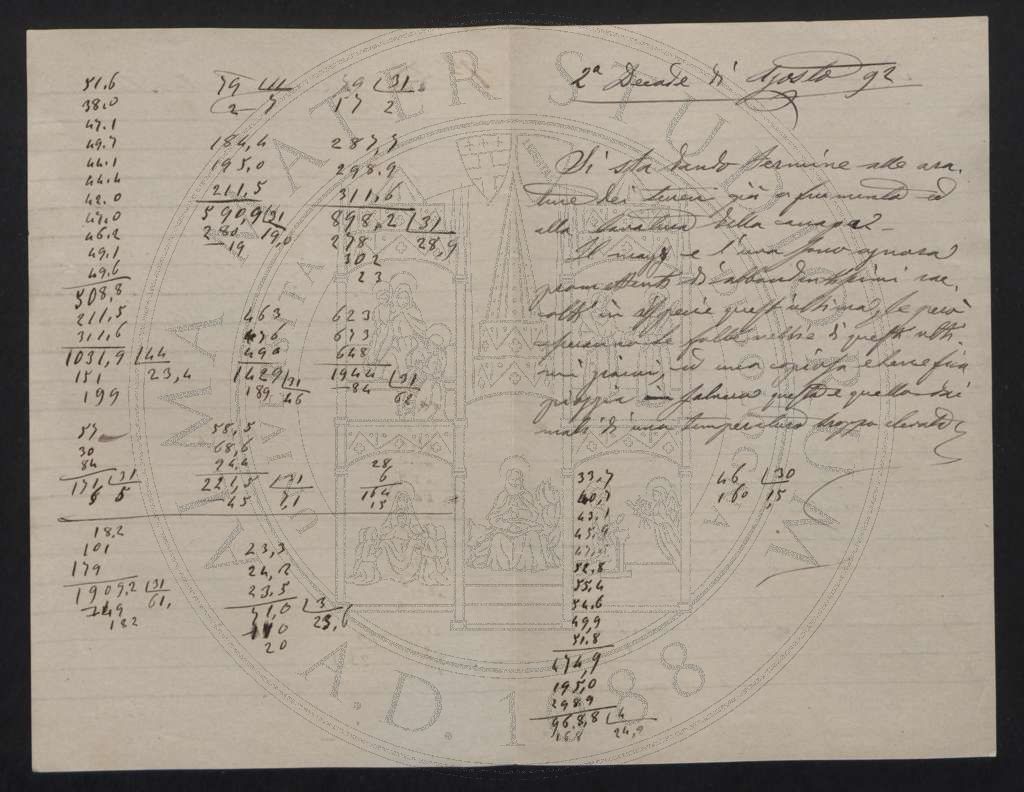 51.6
38.0
47.1
49.7
44.1
44.4
42.0
47.0
46.2
49.1
49.6
508,8
211,5
311,6
1031,9 44
151 23,4
199
79
2 7
31
17 2
184,4
195,0
211,5
590,9 31
280 19,0
19
287,7
298.9
311,6
898,2 31
278 28,9
302
23
463
476
490
1429 31
189 46
623
673
648
1944 31
84 62
57
30
84
171 31
5
58,5
68,6
94,4
221,5 31
45 7,1
28
6
164
15
182
101
179
1909,2 31
49 61,
182
23,3
24,2
23,5
71,0 3
110 23,6
20
2ª Decade di Agosto 92
Si sta dando termine alle ara-
ture dei terreni già a frumento ed
alla lavatura della canapa.
Il mays e l'uva sono ognora
promettenti di abbondantissimi rac-
colti in specie quest'ultima, se però
le folte nebbie di questi ulti-
mi giorni, ed una copiosa e benefica
pioggia questa e quello dai
mali di una temperatura troppo elevata
33,7
40,7
43,1
45,9
47,0
52,8
55,4
54.6
49,9
51,8
474,9
195,0
298,9
968,8 4
168 24,9
46 30
160 15,
ALMA MATER STUDIORUM
A.D. 1088